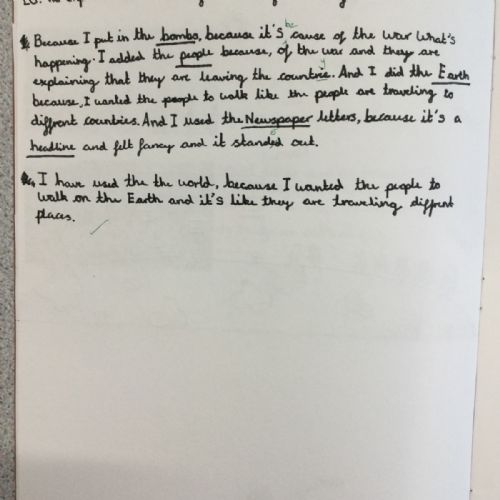 Because I put in the bombs, because it's be cause of the war what's
happening. I added the people because, of the war and they are
explaining that they are leaving the countrie. And I did the Earth
because, I wanted the people to walk like the people are traveling to
diffrent countries. And I used the Newspaper letters, because it's a
headline and felt fancy and it standed out.
I have used the the world, because I wanted the people to
walk on the Earth and it's like they are traveling diffrent
places.